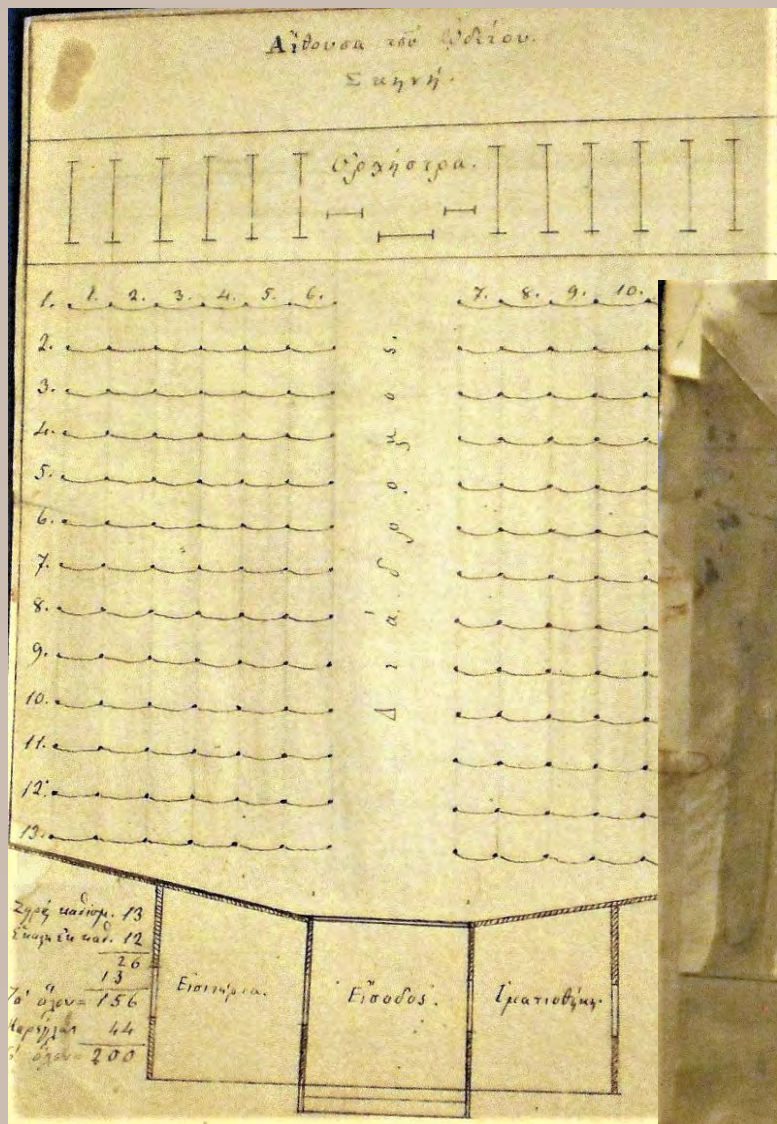 Αἴθουσα τοῦ Ὠδείου.
Σκηνή.
Ὀρχήστρα.
1. 1. 2. 3. 4. 5. 6. 7. 8. 9. 10.
2.
3.
4.
5.
6.
7.
8.
9.
10.
11.
12.
13.
Διάδρομος.
καθισμ. 13
καθ. 12
26
13
Τό ὅλον = 156
44
ὅλον = 200
Εἰσιτήρια.
Εἴσοδος.
Ἱματιοθήκη.